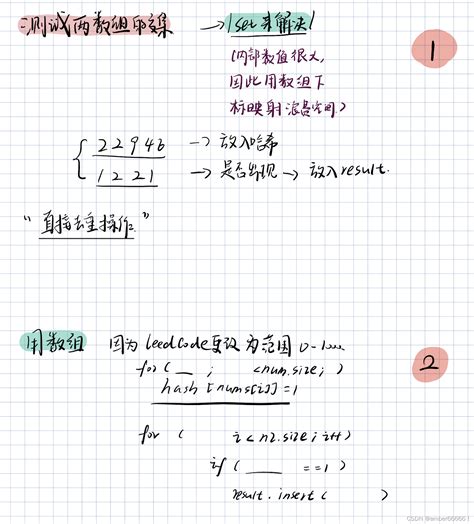 测试两数组的交集 → set来解决
1
(内部数值很大,
因此用数组下
标映射浪费空间)
2 2 9 4 6 → 放入哈希
1 2 2 1 → 是否出现 → 放入result.
"直接去重操作"
用数组 因为leedCode更改为范围0-1000
2
for( __ ; <num.size; )
hash[nums[i]]=1
for( i<n2.size; i++)
if( ____ ==1)
result.insert( )
CSDN @amber66666